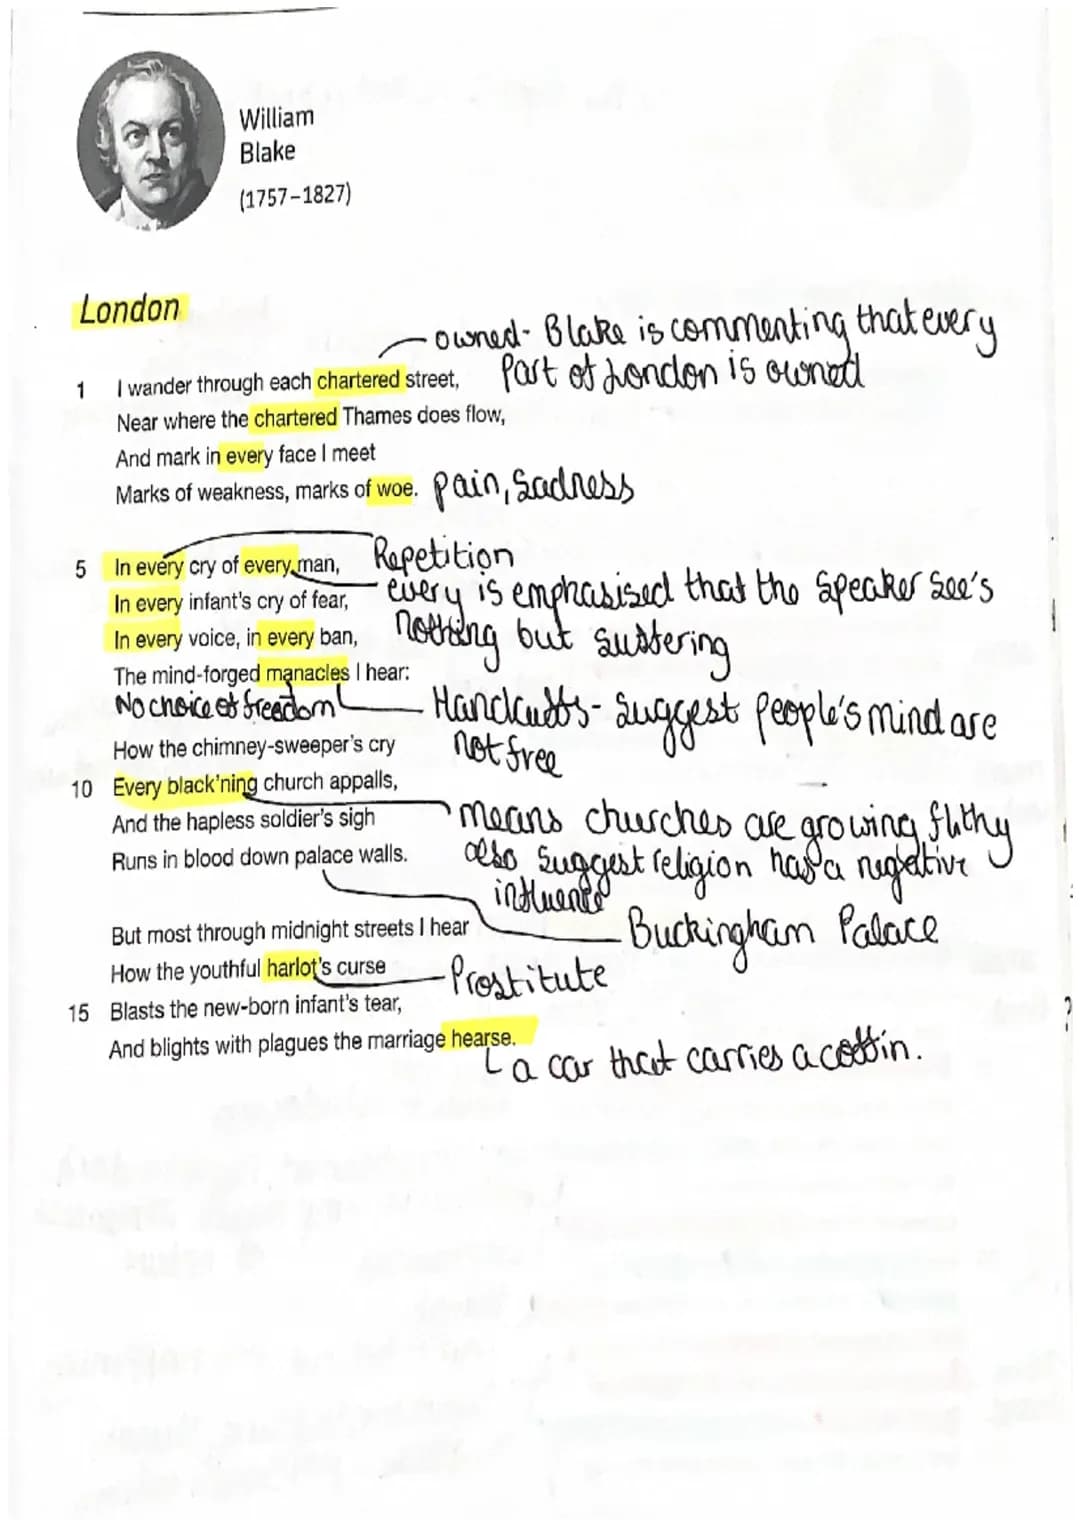 William
Blake
(1757–1827)
London
owned- Blake is commenting that every
Part of London is owned
1 I wander through each chartered street,
Near where the chartered Thames does flow,
And mark in every face I meet
Marks of weakness, marks of woe. pain, Sadness
Repetition
5 In every cry of every man,
every is emphasised that the Speaker See's
In every infant's cry of fear,
nothing but suffering
In every voice, in every ban,
The mind-forged manacles I hear:
No choice of freedom
Handcuffs- Suggest People's mind are
not free
How the chimney-sweeper's cry
10 Every black'ning church appalls,
means churches are growing filthy
And the hapless soldier's sigh
also Suggest religion has a negative
Runs in blood down palace walls.
influence
Buckingham Palace
But most through midnight streets I hear
How the youthful harlot's curse
Prostitute
15 Blasts the new-born infant's tear,
And blights with plagues the marriage hearse.
a car that carries a coffin.